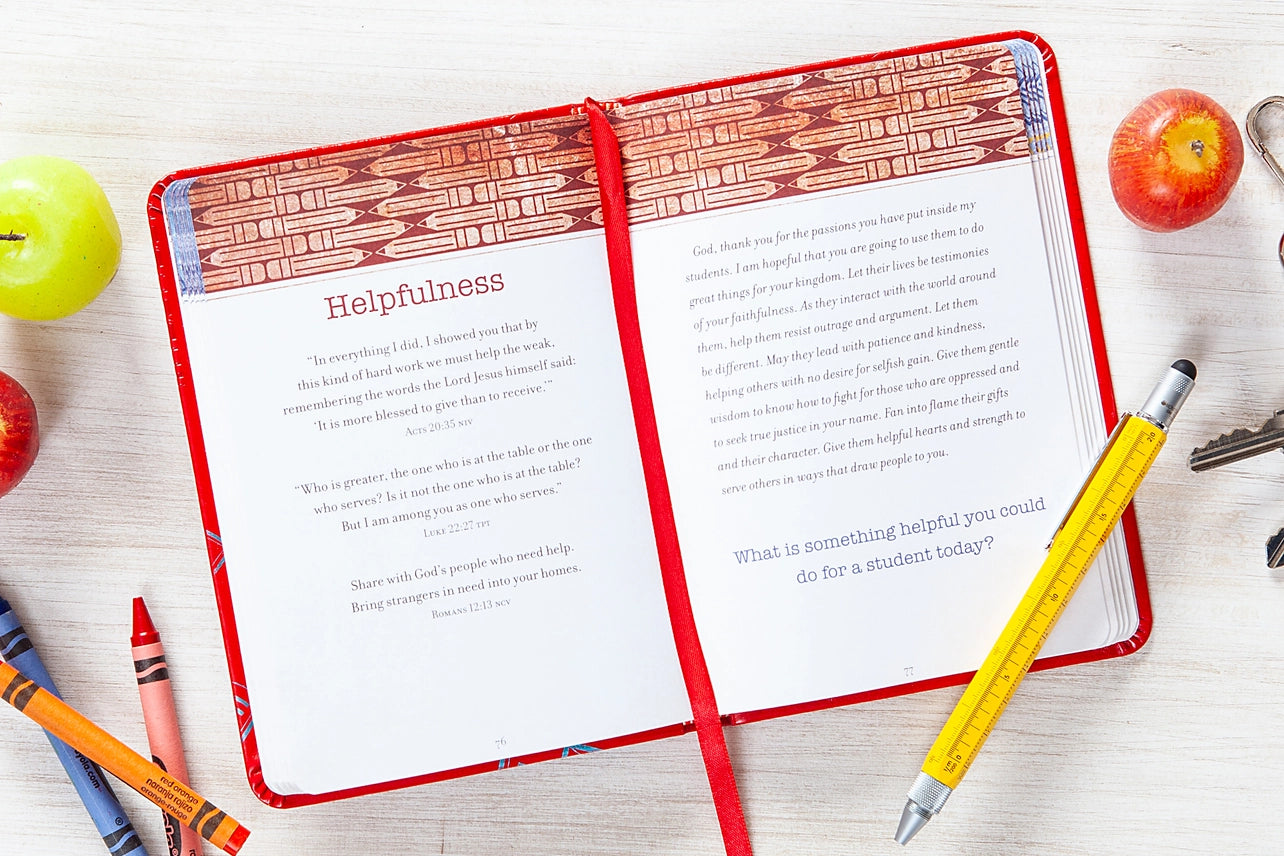 Helpfulness
“In everything I did, I showed you that by
this kind of hard work we must help the weak,
remembering the words the Lord Jesus himself said:
‘It is more blessed to give than to receive.’”
Acts 20:35 NIV
“Who is greater, the one who is at the table or the one
who serves? Is it not the one who is at the table?
But I am among you as one who serves.”
Luke 22:27 TPT
Share with God’s people who need help.
Bring strangers in need into your homes.
Romans 12:13 NCV
76
God, thank you for the passions you have put inside my
students. I am hopeful that you are going to use them to do
great things for your kingdom. Let their lives be testimonies
of your faithfulness. As they interact with the world around
them, help them resist outrage and argument. Let them
be different. May they lead with patience and kindness,
helping others with no desire for selfish gain. Give them gentle
wisdom to know how to fight for those who are oppressed and
to seek true justice in your name. Fan into flame their gifts
and their character. Give them helpful hearts and strength to
serve others in ways that draw people to you.
What is something helpful you could
do for a student today?
77
red orange
naranja rojizo
orange-rouge